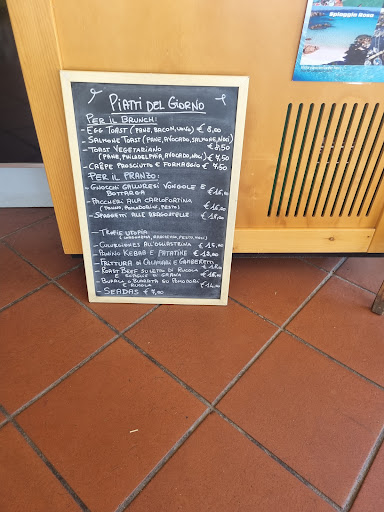 Spiaggia Rosa
Piatti del Giorno
Per il Brunch:
- Egg Toast (pane, bacon, uovo) € 6,00
- Salmone Toast (pane, avocado, salmone, noci)
€ 8,50
- Toast Vegetariano
(pane, philadelphia, avocado, noci) € 7,50
- Crêpe Prosciutto e Formaggio € 7,50
Per il Pranzo:
- Gnocchi Galluresi Vongole e
Bottarga €16,00
- Paccheri alla Carlofortina
(tonno, pomodorini, pesto) €16,00
- Spaghetti alle
- Trofie Utopia
- Culurgiones all'Ogliastrina € 15,00
- Panino Kebab e Patatine € 12,00
- Frittura di Calamari e Gamberetti
- Roast Beef su letto di Rucola
e scaglie di grana
- Bufala o Burrata su Pomodori
e Rucola €14,00
- Seadas € 7,00